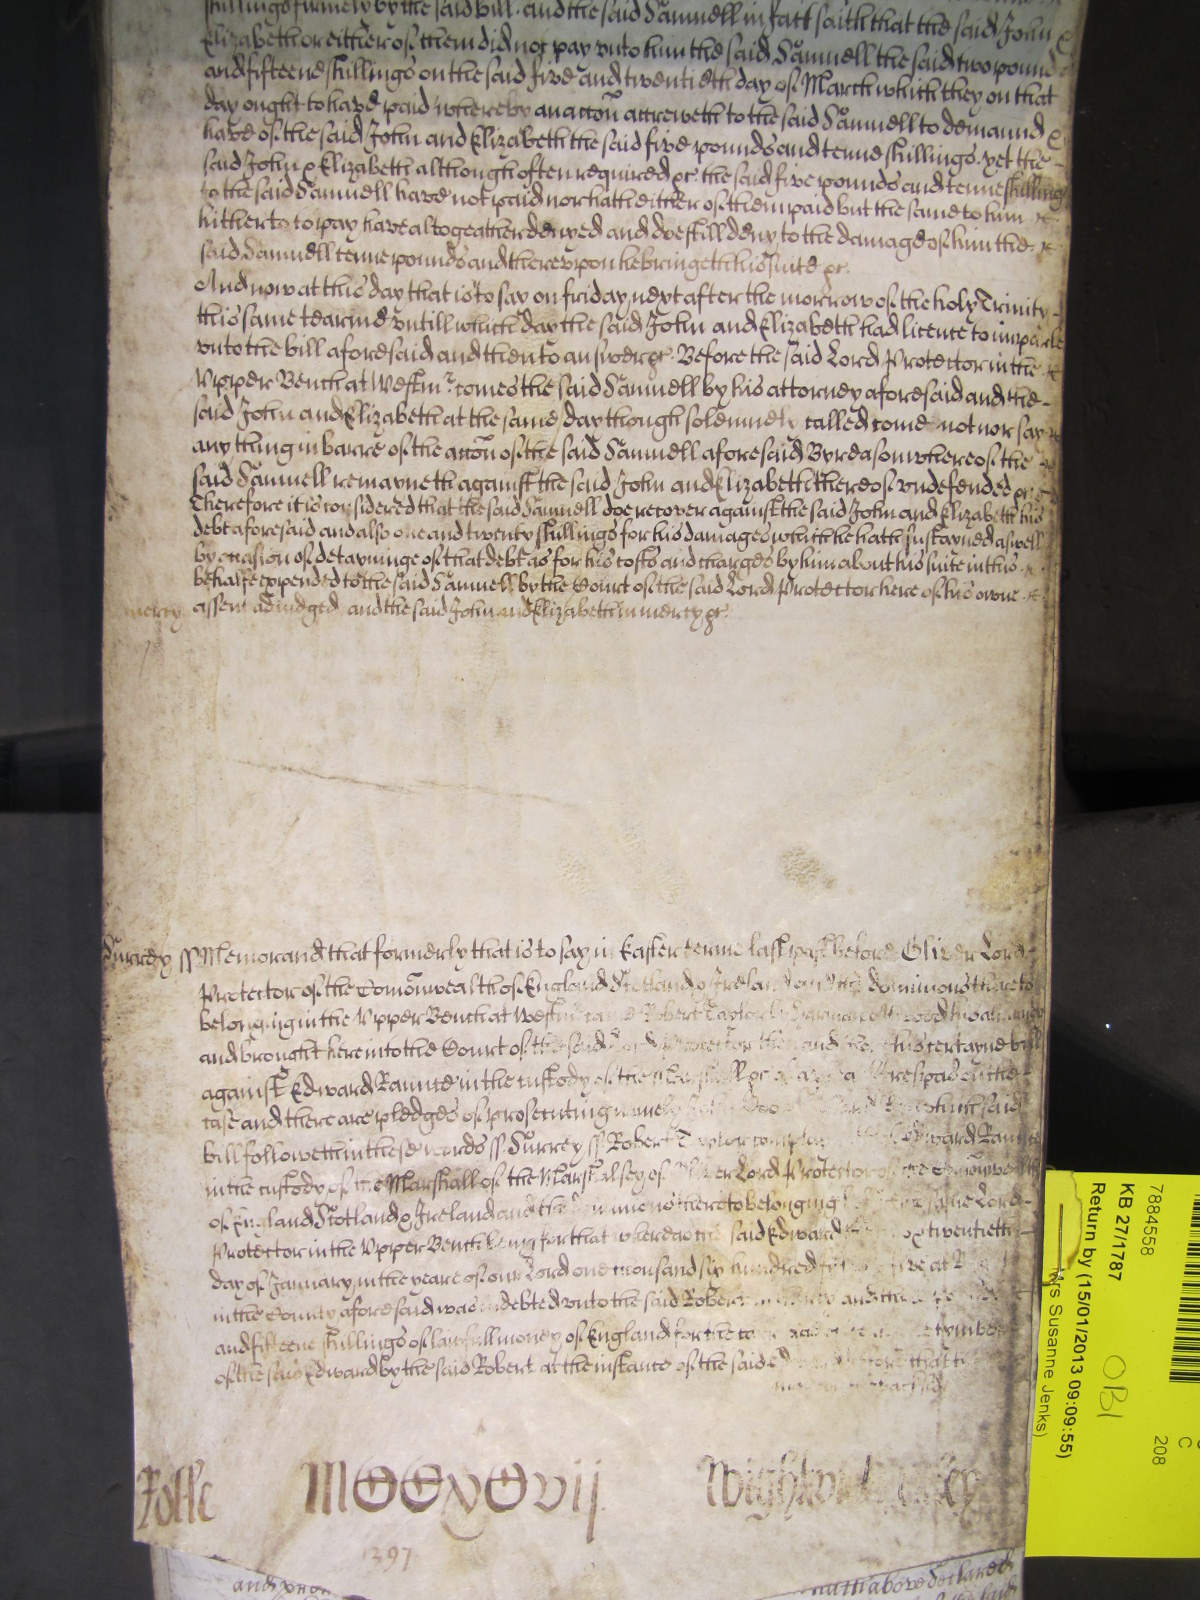 shillings firmely by the said bill. and the said Samuell in fact saith that the said John &
Elizabeth or either of them did not pay unto him the said Samuell the said two pounds
and fifteene shillings on the said five and twentieth day of March which they on that
day ought to have paid whereby an accon accreweth to the said Samuell to demaund &
have of the said John and Elizabeth the said five pounds and tenne shillings. yet the
said John & Elizabeth although often required &c. the said five pounds and tenne shillings
to the said Samuell have not paid nor hath either of them paid but the same to him
hitherto to pay have altogeather denyed and doe still deny to the damage of him the
said Samuell tenne pounds and thereupon he bringeth his suite &c.
And now at this day that is to say on friday next after the morrow of the holy Trinity
this same tearme untill which day the said John and Elizabeth had licence to imparle
unto the bill aforesaid and then to answer &c. Before the said Lord Protector in the
Upper Bench at Westmr. comes the said Samuell by his attorney aforesaid and the
said John and Elizabeth at the same day though solemnely called come not nor say
any thing in barre of the accon of the said Samuell aforesaid By reason whereof the
said Samuell remayneth against the said John and Elizabeth thereof undefended &c.
Therefore it is considered that the said Samuell doe recover against the said John and Elizabeth his
debt aforesaid and also one and twenty shillings for his damages which he hath sustayned aswell
by occasion of detayninge of that debt as for his costs and charges by him about his suite in this
behalfe expended to the said Samuell by the Court of the said Lord Protector here of his owne
mercy assent adiudged. and the said John and Elizabeth in mercy &c.
Surrey ss Memorand that formerly that is to say in Easter terme last past before Oliver Lord
Protector of the Comonwealth of England Scotland & Ireland and the dominions thereto
belonging in the Upper Bench at Westmr came Robert Taylor by
and brought here into the Court of the said Lord Protector then and there his certayne bill
against Edward Rannce in the custody of the Marshall &c of a plea of Trespas on the
case and there are pledges of prosecuting namely John Doo and Richard Roo which said
bill followeth in these words ss. Surrey ss Robert Taylor complaynes of Edward
in the custody of the Marshall of the Marshalsey of Oliver Lord Protector of the Comonwealth
of England Scotland & Ireland and the dominions thereto belonging before the same Lord
Protector in the Upper Bench being for that whereas the said Edward twentieth
day of January in the yeare of our Lord one thousand six hundred fifty five at
in the County aforesaid was indebted unto the said Robert
and fifteene shillings of lawfull money of England for the
of the said Edward by the said Robert at the instance of the said
Rolle MCCCxCvij. Wightwick
1397
above declared
7884558
KB 27/1787
Return by (15/01/2013 09:09:55)
Mrs Susanne Jenks)
OB1
C
208